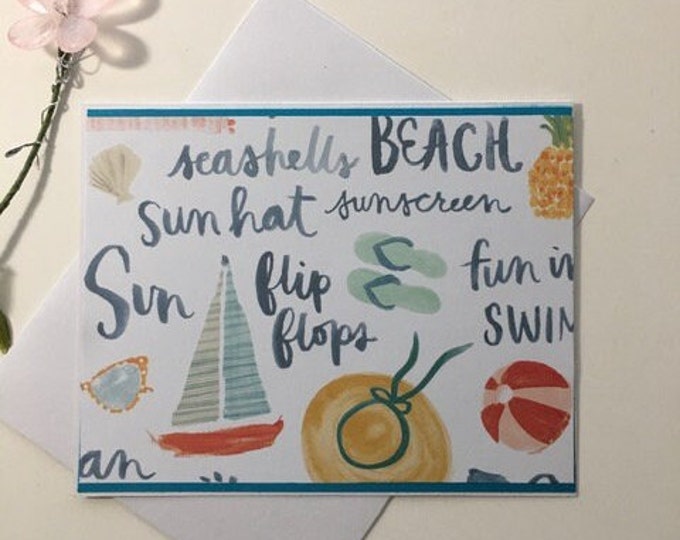 seashells BEACH
sun hat sunscreen
Sun flip flops fun in
SWIM
an